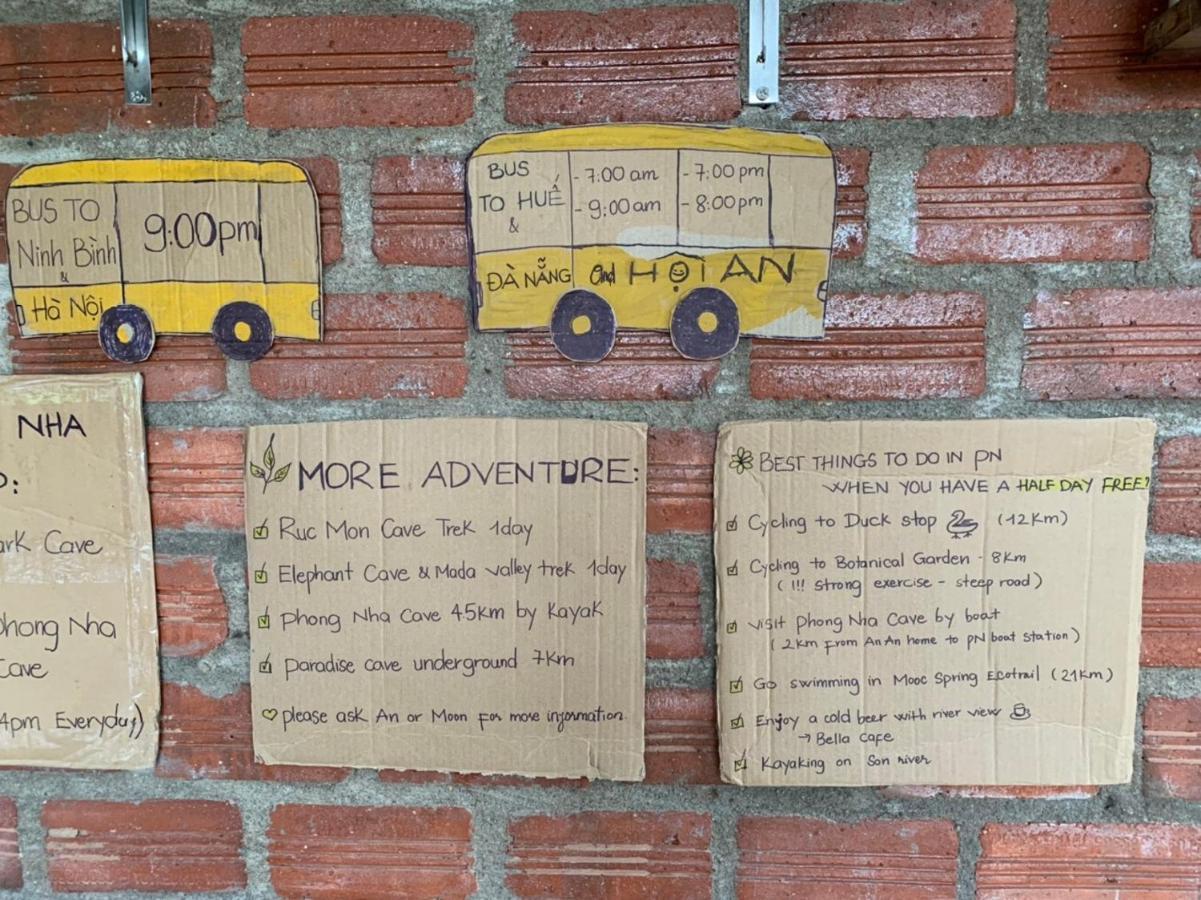 BUS TO
Ninh Bình
&
Hà Nội
9:00pm
BUS
TO HUẾ
&
ĐÀ NẴNG and HỘI AN
- 7:00 am
- 9:00 am
- 7:00 pm
- 8:00 pm
NHA
Cave
phong Nha
Cave
4pm Everyday)
MORE ADVENTURE:
Ruc Mon Cave Trek 1day
Elephant Cave & Mada valley trek 1day
Phong Nha Cave 4.5km by Kayak
paradise cave underground 7km
please ask An or Moon for more information
BEST THINGS TO DO IN PN
WHEN YOU HAVE A HALF DAY FREE?
Cycling to Duck stop (12km)
Cycling to Botanical Garden - 8km
( !!! strong exercise - steep road )
visit phong Nha Cave by boat
( 2km from An An home to pN boat station )
Go swimming in Mooc Spring Ecotrail (21km)
Enjoy a cold beer with river view
→ Bella Cafe
Kayaking on Son river